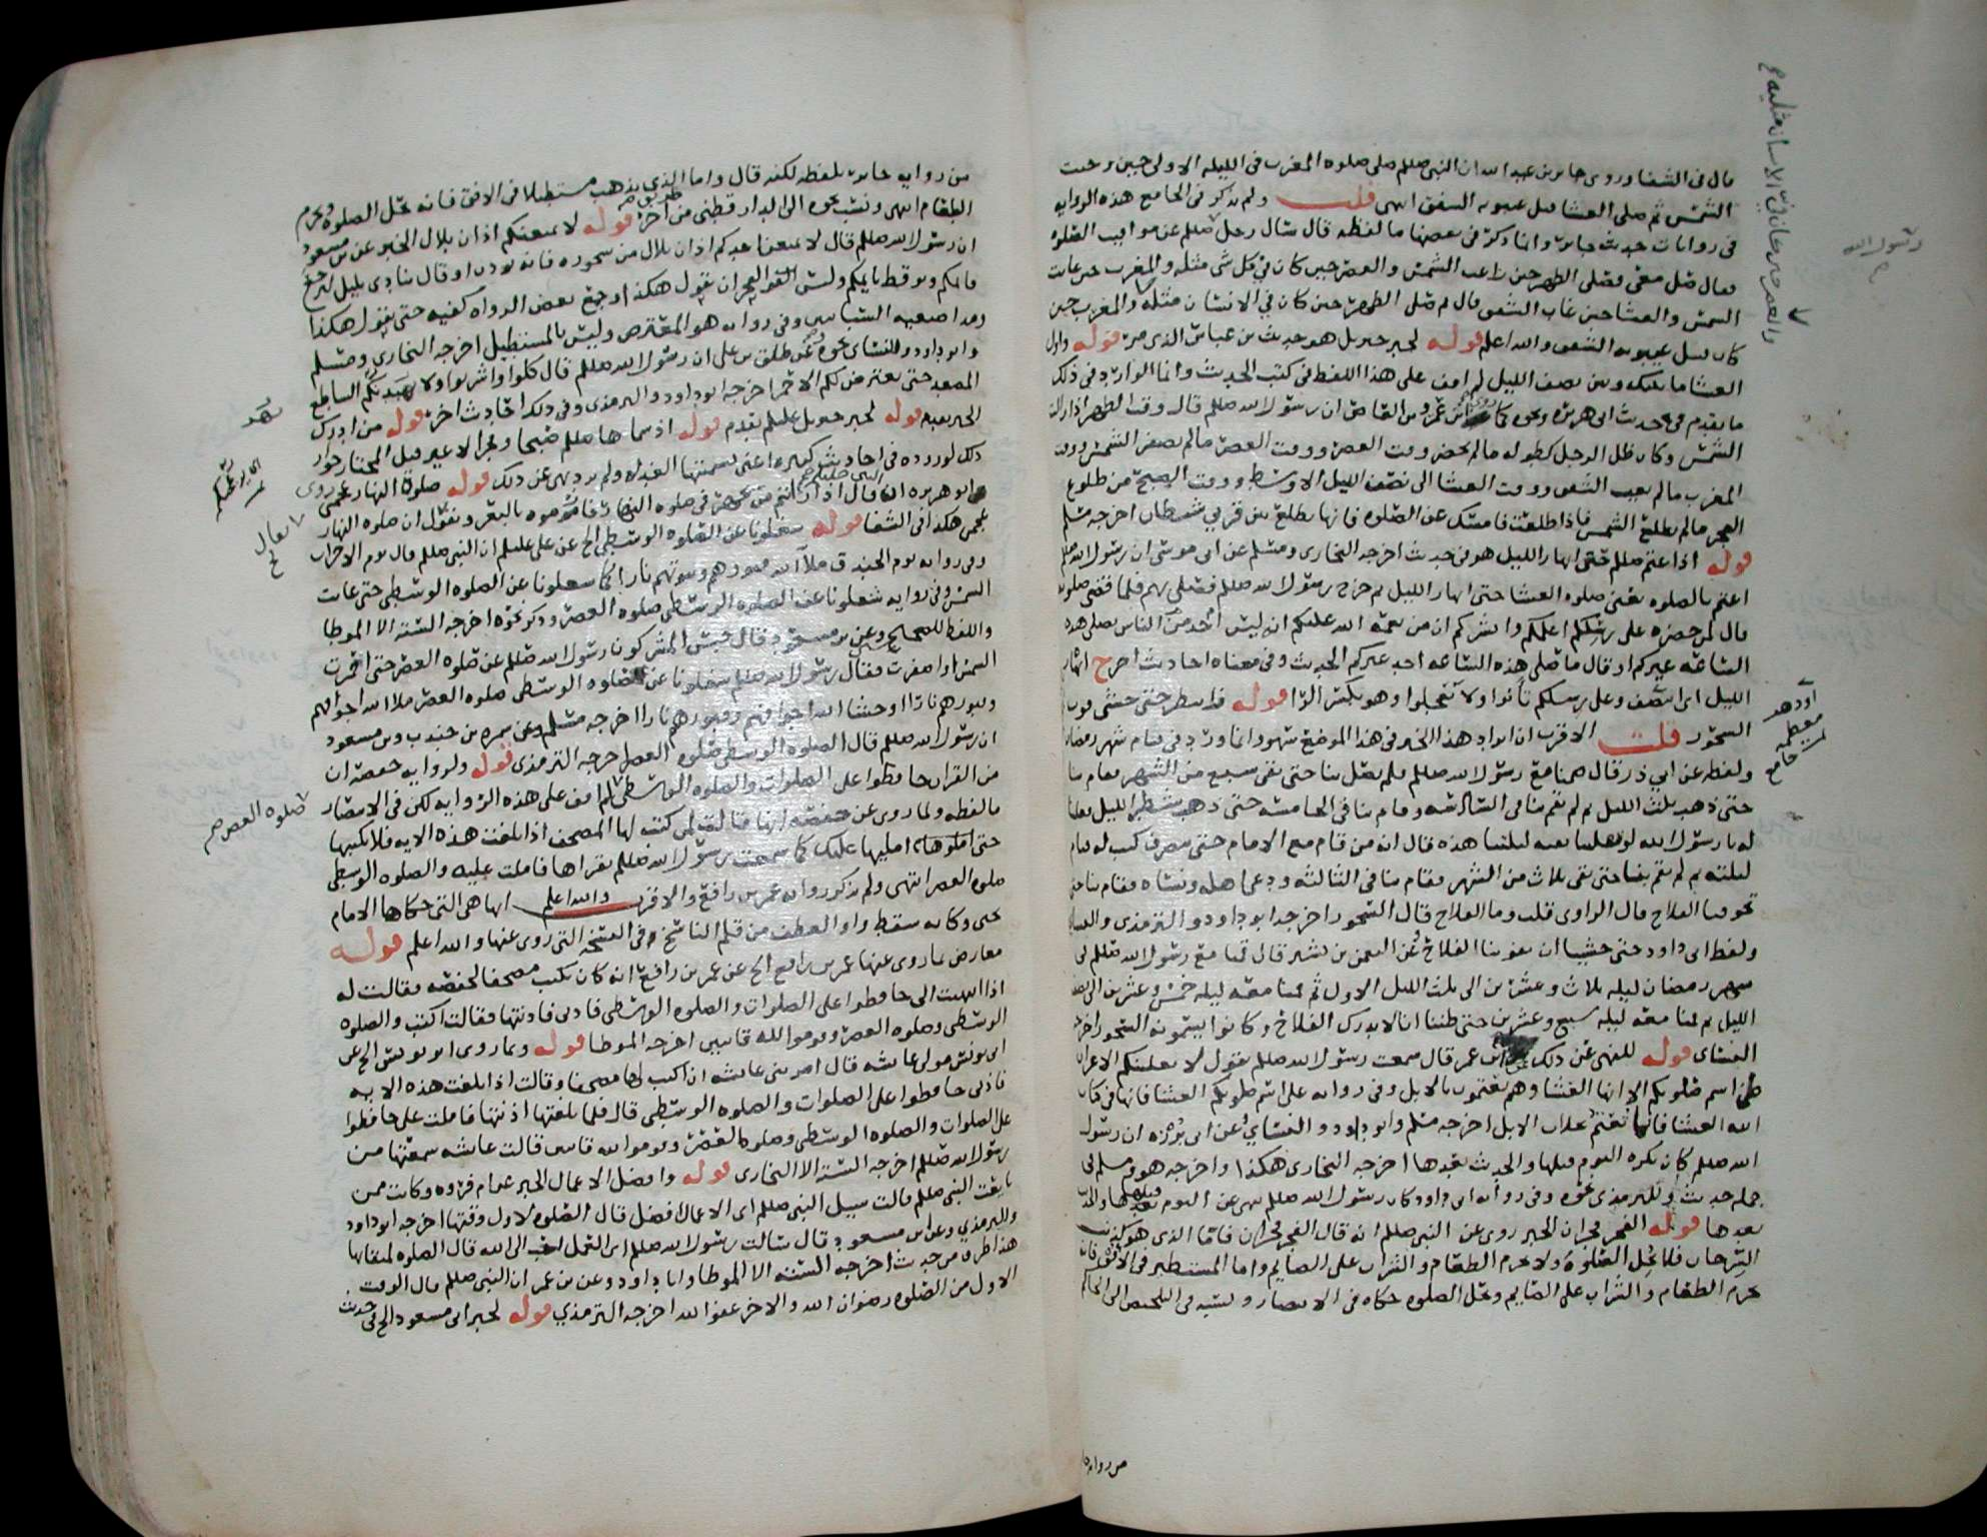 قال في الشفا وروى جابر بن عبد الله ان النبي صللم صلى صلوه المغرب في الليله الاولى حين وجبت
الشمس ثم صلى العشا قبل غيبوبه الشفق انتهى قلت ولم يذكر في الجامع هذه الروايه
في روايات حديث جابر وانما ذكر في بعضها ما لفظه قال سال رجل رسول الله صللم عن مواقيت الصلوه
فقال صل معي فصلى الظهر حين زاغت الشمس والعصر حين كان في كل شي مثله والمغرب حين غابت
الشمس والعشا حين غاب الشفق قال ثم صلى الظهر حين كان في الانسان مثله والمغرب حين
كان قبل غيبوبه الشفق والله اعلم قوله لخبر جبريل هو حديث بن عباس الذي مر قوله واول
العشا ما بينك وبين نصف الليل لم اقف على هذا اللفظ في كتب الحديث وانما الوارد في ذلك
ما تقدم في حديث ابي هريره ونحوه كما روى عن عمرو بن العاص ان رسول الله صللم قال وقت الظهر اذا زالت
الشمس وكان ظل الرجل كطوله ما لم يحضر وقت العصر ووقت العصر ما لم تصفر الشمس ووقت
المغرب ما لم يغب الشفق ووقت العشا الى نصف الليل الاوسط ووقت الصبح من طلوع
الفجر ما لم تطلع الشمس فاذا طلعت فامسك عن الصلوه فانها تطلع بين قرني شيطان اخرجه مسلم
قوله اذا اعتم صللم حتى ابهار الليل هو في حديث اخرجه البخاري ومسلم عن ابي موسى ان رسول الله صللم
اعتم بالصلوه يعني صلوه العشا حتى ابهار الليل ثم خرج رسول الله صللم فصلى بهم فلما قضى صلوته
قال لمن حضره على رسلكم اعلمكم وابشركم ان من نعمة الله عليكم انه ليس احد من الناس يصلي هذه
الساعه غيركم او قال ما صلى هذه الساعه احد غيركم الحديث وفي معناه احاديث اخر ابهار
الليل اي انتصف وعلى رسلكم تانوا ولا تعجلوا وهو بكسر الرا قوله فانتظر حتى خشي فوت
السحور قلت الاقرب ان ايراد هذا الخبر في هذا الموضع سهو وانما ورد في قيام شهر رمضان
ولفظه عن ابي ذر قال صمنا مع رسول الله صللم فلم يصل بنا حتى بقي سبع من الشهر فقام بنا
حتى ذهب ثلث الليل ثم لم يقم بنا في السادسه وقام بنا في الخامسه حتى ذهب شطر الليل فقلنا
له يا رسول الله لو نفلتنا بقيه ليلتنا هذه قال انه من قام مع الامام حتى ينصرف كتب له قيام
ليلته ثم لم يقم بنا حتى بقي ثلاث من الشهر فقام بنا في الثالثه ودعى اهله ونساه فقام بنا حتى
تخوفنا الفلاح قال الراوي قلت وما الفلاح قال السحور اخرجه ابو داود والترمذي والنساي
ولفظ ابي داود حتى خشينا ان يفوتنا الفلاح وعن النعمن بن بشير قال قمنا مع رسول الله صللم في
شهر رمضان ليله ثلاث وعشرين الى ثلث الليل الاول ثم قمنا معه ليله خمس وعشرين الى نصف
الليل ثم قمنا معه ليله سبع وعشرين حتى ظننا انا لا ندرك الفلاح وكانوا يسمونه السحور اخرجه
النساي قوله للنهي عن ذلك عن ابن عمر قال سمعت رسول الله صللم يقول لا يغلبنكم الاعراب
على اسم صلوتكم الا انها العشا وهم يعتمون بالابل وفي روايه على اسم صلوتكم العشا فانها في كتاب
الله العشا فانها تعتم بحلاب الابل اخرجه مسلم وابو داود والنساي وعن ابي برزه ان رسول
الله صللم كان يكره النوم قبلها والحديث بعدها اخرجه البخاري هكذا واخرجه هو ومسلم في
جمله حديث وللترمذي نحوه وفي روايه ابي داود كان رسول الله صللم ينهى عن النوم قبلها والحديث
بعدها قوله الفجر فجران لخبر روي عن النبي صللم انه قال الفجر فجران فاما الذي هو كذنب
السرحان فلا تحل الصلوه ولا يحرم الطعام والشراب على الصايم واما المستطير في الافق فانه
يحرم الطعام والشراب على الصايم وتحل الصلوه حكاه في الانتصار ونسبه في التلخيص الى الحاكم
من روايه
رسول الله
من روايه جابر بلفظه لكنه قال واما الذي يذهب مستطيلا في الافق فانه يحل الصلوه ويحرم
الطعام انتهى ونسب نحوه الى الدارقطني من طريق اخر قوله لا يمنعنكم اذان بلال الخبر عن بن مسعود
ان رسول الله صللم قال لا يمنعن احدكم اذان بلال من سحوره فانه يوذن او قال ينادي بليل ليرجع
قايمكم ويوقظ نايمكم وليس الفجر ان يقول هكذا وجمع بعض الرواه كفيه حتى يقول هكذا
ومد اصبعيه السبابتين وفي روايه هو المعترض وليس بالمستطيل اخرجه البخاري ومسلم
وابو داود وللنساي نحوه وعن طلق بن علي ان رسول الله صللم قال كلوا واشربوا ولا يهيدنكم الساطع
المصعد حتى يعترض لكم الاحمر اخرجه ابو داود والترمذي وفي ذلك احاديث اخر قوله من ادرك
الخبر بعينه قوله لخبر جبريل عليلم تقدم قوله اذ سماها صللم صبحا وفجرا لا غير قبل المختار جواز
ذلك لوروده في احاديث كثيره اعني تسميتها الغداه ولم يرد نهي عن ذلك قوله صلوة النهار عجمى روى
ابو هريره ان النبي صللم قال اذا رايتم من يجهر في صلوه النهار فارموه بالبعر ونقول ان صلوه النهار
عجمى هكذا في الشفا قوله شغلونا عن الصلوه الوسطى الخ عن علي عليلم ان النبي صللم قال يوم الاحزاب
وفي روايه يوم الخندق ملا الله قبورهم وبيوتهم نارا كما شغلونا عن الصلوه الوسطى حتى غابت
الشمس وفي روايه شغلونا عن الصلوه الوسطى صلوه العصر وذكر نحوه اخرجه السته الا الموطا
واللفظ للصحيحين وعن بن مسعود قال حبس المشركون رسول الله صللم عن صلوه العصر حتى احمرت
الشمس او اصفرت فقال رسول الله صللم شغلونا عن الصلوه الوسطى صلوه العصر ملا الله اجوافهم
وقبورهم نارا او حشا الله اجوافهم وقبورهم نارا اخرجه مسلم وعن سمره بن جندب وبن مسعود
ان رسول الله صللم قال الصلوه الوسطى صلوه العصر اخرجه الترمذي قوله ولروايه حفصه ان
من القران حافظوا على الصلوات والصلوه الوسطى لم اقف على هذه الروايه لكن في الانتصار
ما لفظه ولما روي عن حفصه انها قالت لمن كتب لها المصحف اذا بلغت هذه الايه فلا تكتبها
حتى املوها امليها عليك كما سمعت رسول الله صللم يقراها فاملت عليه والصلوه الوسطى
صلوه العصر انتهى ولم يذكر روايه عمر بن رافع والاقرب والله اعلم انها هي التي حكاها الامام
يحيى وكانه سقط واو العطف من قلم الناسخ في النسخه التي روي عنها والله اعلم قوله
معارض بما روي عنها عمر بن رافع الخ عن عمر بن رافع انه كان يكتب مصحفا لحفصه فقالت له
اذا انتهيت الى حافظوا على الصلوات والصلوه الوسطى فاذني فاذنتها فقالت اكتب والصلوه
الوسطى وصلوه العصر وقوموا لله قانتين اخرجه الموطا قوله وبما روى ابو يونس الخ عن
ابي يونس مولى عايشه قال امرتني عايشه ان اكتب لها مصحفا وقالت اذا بلغت هذه الايه
فاذني حافظوا على الصلوات والصلوه الوسطى قال فلما بلغتها اذنتها فاملت علي حافظوا
على الصلوات والصلوه الوسطى وصلوه العصر وقوموا لله قانتين قالت عايشه سمعتها من
رسول الله صللم اخرجه السته الا البخاري قوله وافضل الاعمال الخبر عن ام فروه وكانت ممن
بايعت النبي صللم قالت سيل النبي صللم اي الاعمال افضل قال الصلوه لاول وقتها اخرجه ابو داود
والترمذي وعن ابن مسعود قال سالت رسول الله صللم اي العمل احب الى الله قال الصلوه لميقاتها
هذا طرف من حديث اخرجه السته الا الموطا وابا داود وعن بن عمر ان النبي صللم قال الوقت
الاول من الصلوه رضوان الله والاخر عفو الله اخرجه الترمذي قوله لخبر ابن مسعود الخ في حديث
صلوه العصر صح